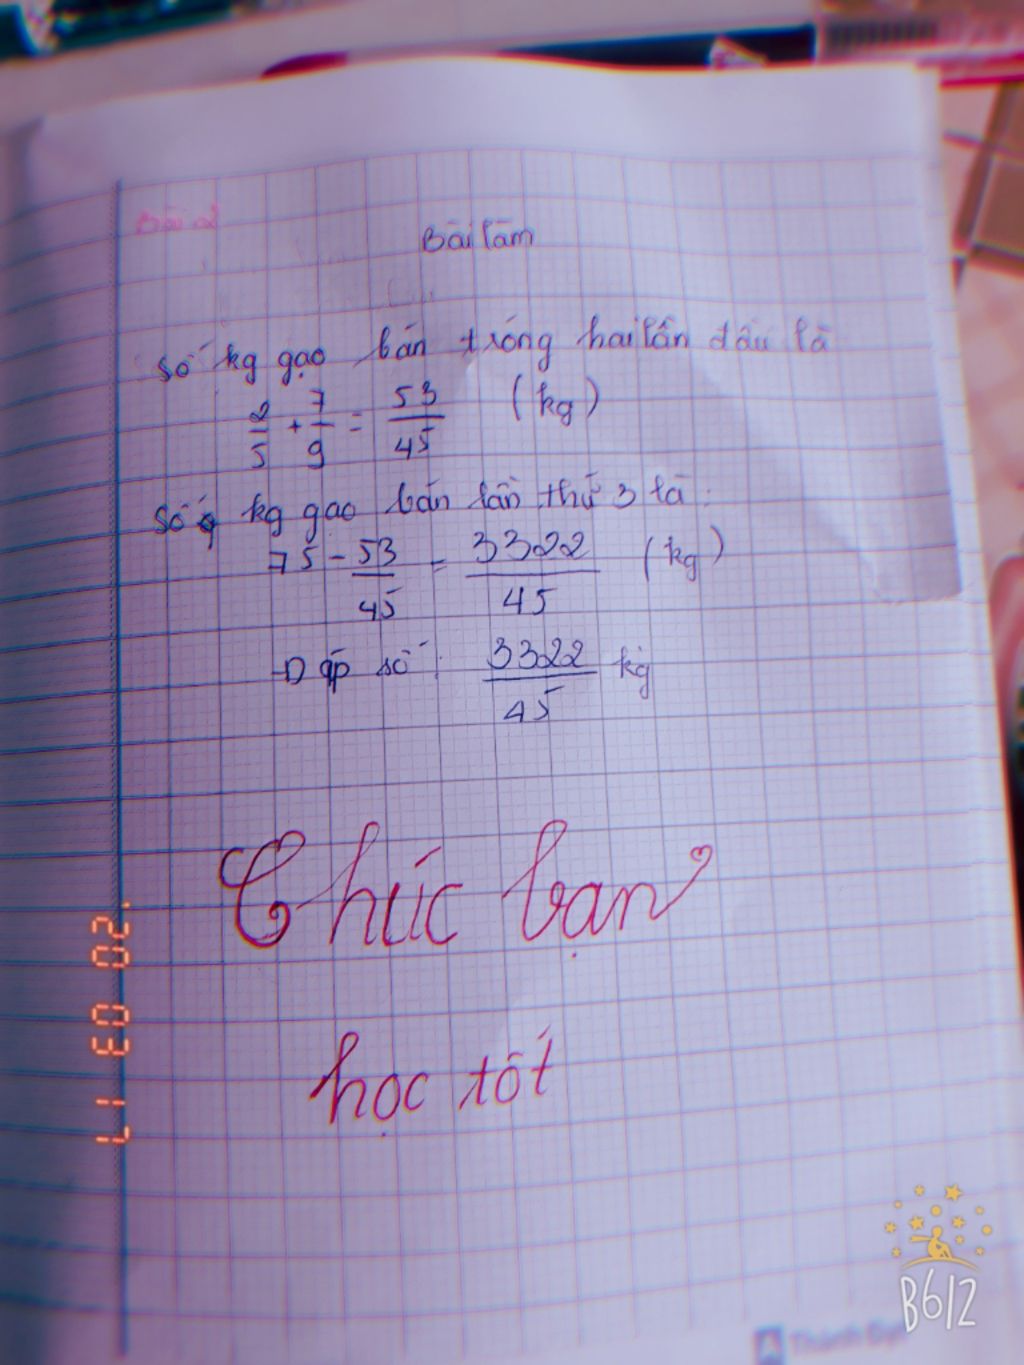 Bài 2
Bài làm
Số kg gạo bán trong hai lần đầu là
2/5 + 7/9 = 53/45 (kg)
Số kg gạo bán lần thứ 3 là:
75 - 53/45 = 3322/45 (kg)
Đáp số: 3322/45 kg
Chúc bạn
học tốt
'20 03 17
B612